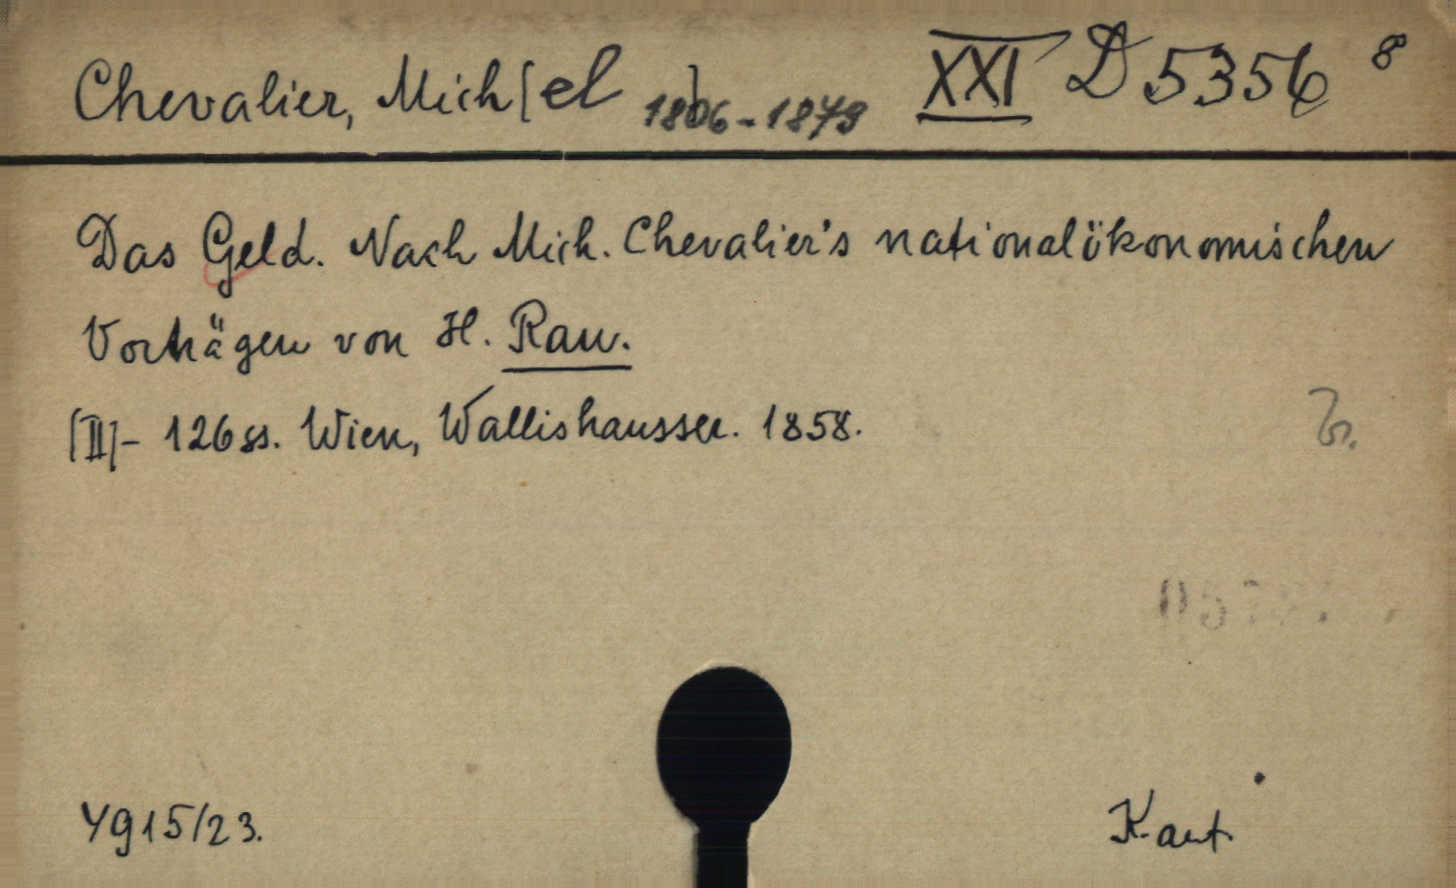 Chevalier, Mich[el] 1806-1879 XXI D 5356 8
Das Geld. Nach Mich. Chevalier's nationalökonomischen
Vorträgen von H. Rau.
[II]- 126 ss. Wien, Wallishausser. 1858.
4915/23.
Kaut.